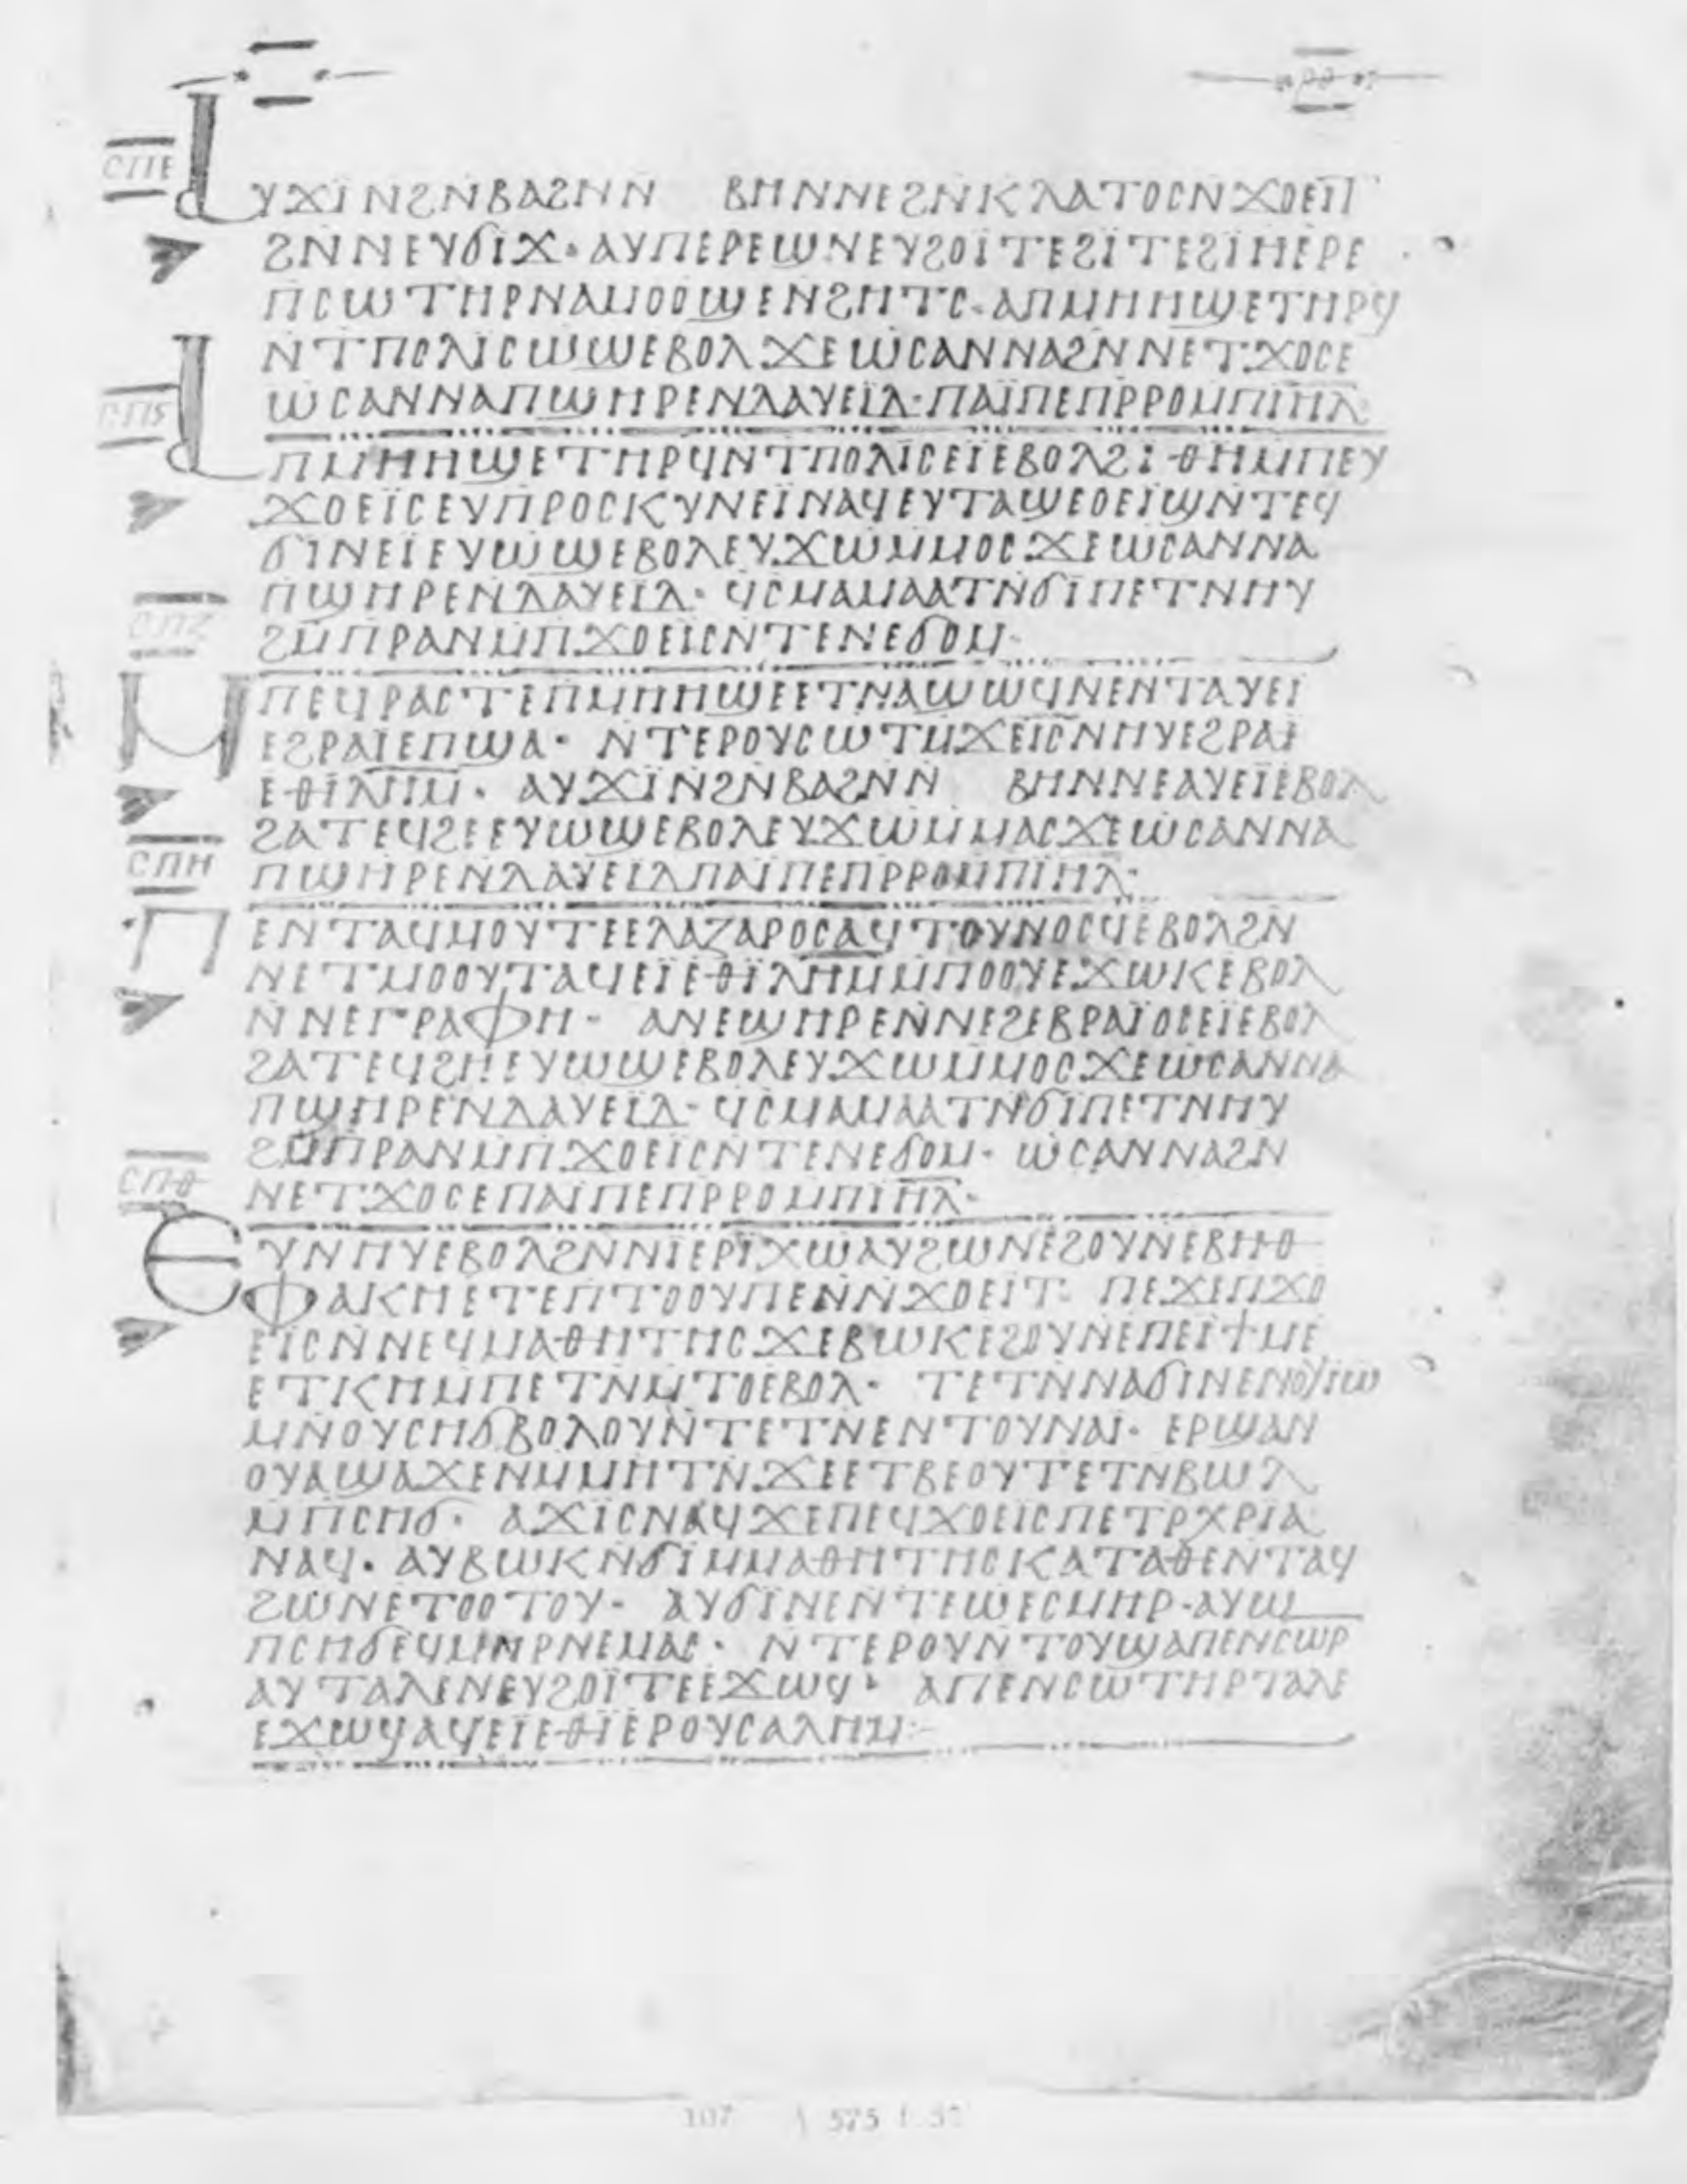 ⲥⲡⲉ
ⲁⲩϫⲓ ⲛϩⲛⲃⲁϩⲛⲛ ⲃⲏⲛⲛⲉϩⲛⲕⲗⲁⲧⲟⲥⲛϫⲟⲉⲓⲧ
ϩⲛⲛⲉⲩϭⲓϫ· ⲁⲩⲡⲉⲣⲉϣⲛⲉⲩϩⲟⲓⲧⲉϩⲓⲧⲉϩⲓⲏⲉⲣⲉ
ⲡⲥⲱⲧⲏⲣⲛⲁⲙⲟⲟϣⲉⲛϩⲏⲧⲥ· ⲁⲡⲙⲏⲏϣⲉⲧⲏⲣϥ
ⲛⲧⲡⲟⲗⲓⲥⲱϣⲉⲃⲟⲗϫⲉⲱⲥⲁⲛⲛⲁϩⲛⲛⲉⲧϫⲟⲥⲉ
ⲱⲥⲁⲛⲛⲁⲡϣⲏⲣⲉⲛⲇⲁⲩⲉⲓⲇ· ⲡⲁⲓⲡⲉⲡⲣⲣⲟⲙⲡⲓⲏⲗ·
ⲥⲡⲋ
ⲁⲡⲙⲏⲏϣⲉⲧⲏⲣϥⲛⲧⲡⲟⲗⲓⲥⲉⲓⲉⲃⲟⲗϩⲓⲑⲏⲙⲡⲉⲩ
ϫⲟⲉⲓⲥⲉⲩⲡⲣⲟⲥⲕⲩⲛⲉⲓⲛⲁϥⲉⲩⲧⲁϣⲉⲟⲉⲓϣⲛⲧⲉϥ
ϭⲓⲛⲉⲓⲉⲩⲱϣⲉⲃⲟⲗⲉⲩϫⲱⲙⲙⲟⲥϫⲉⲱⲥⲁⲛⲛⲁ
ⲡϣⲏⲣⲉⲛⲇⲁⲩⲉⲓⲇ· ϥⲥⲙⲁⲙⲁⲁⲧⲛϭⲓⲡⲉⲧⲛⲏⲩ
ϩⲙⲡⲣⲁⲛⲙⲡϫⲟⲉⲓⲥⲛⲧⲉⲛⲉϭⲟⲙ·
ⲥⲡⲍ
ⲙⲡⲉϥⲣⲁⲥⲧⲉⲡⲙⲏⲏϣⲉⲉⲧⲛⲁϣⲱϥⲛⲉⲛⲧⲁⲩⲉⲓ
ⲉϩⲣⲁⲓⲉⲡϣⲁ· ⲛⲧⲉⲣⲟⲩⲥⲱⲧⲙϫⲉⲓⲥⲛⲏⲩⲉϩⲣⲁⲓ
ⲉⲑⲓⲗⲏⲙ· ⲁⲩϫⲓⲛϩⲛⲃⲁϩⲛⲛ ⲃⲏⲛⲛⲉⲁⲩⲉⲓⲉⲃⲟⲗ
ϩⲁⲧⲉϥϩⲉⲉⲩⲱϣⲉⲃⲟⲗⲉⲩϫⲱⲙⲙⲁⲥϫⲉⲱⲥⲁⲛⲛⲁ
ⲡϣⲏⲣⲉⲛⲇⲁⲩⲉⲓⲇⲡⲁⲓⲡⲉⲡⲣⲣⲟⲙⲡⲓⲏⲗ·
ⲥⲡⲏ
ⲡⲉⲛⲧⲁϥⲙⲟⲩⲧⲉⲉⲗⲁⲍⲁⲣⲟⲥⲁϥⲧⲟⲩⲛⲟⲥϥⲉⲃⲟⲗϩⲛ
ⲛⲉⲧⲙⲟⲟⲩⲧⲁϥⲉⲓⲉⲑⲓⲗⲏⲙⲙⲡⲟⲟⲩⲉϫⲱⲕⲉⲃⲟⲗ
ⲛⲛⲉⲅⲣⲁⲫⲏ· ⲁⲛⲉϣⲏⲣⲉⲛⲛⲉϩⲉⲃⲣⲁⲓⲟⲥⲉⲓⲉⲃⲟⲗ
ϩⲁⲧⲉϥϩⲏⲉⲩⲱϣⲉⲃⲟⲗⲉⲩϫⲱⲙⲙⲟⲥϫⲉⲱⲥⲁⲛⲛⲁ
ⲡϣⲏⲣⲉⲛⲇⲁⲩⲉⲓⲇ· ϥⲥⲙⲁⲙⲁⲁⲧⲛϭⲓⲡⲉⲧⲛⲏⲩ
ϩⲙⲡⲣⲁⲛⲙⲡϫⲟⲉⲓⲥⲛⲧⲉⲛⲉϭⲟⲙ· ⲱⲥⲁⲛⲛⲁϩⲛ
ⲛⲉⲧϫⲟⲥⲉⲡⲁⲓⲡⲉⲡⲣⲣⲟⲙⲡⲓⲏⲗ·
ⲥⲡⲑ
ⲉⲩⲛⲏⲩⲉⲃⲟⲗϩⲛⲛⲓⲉⲣⲓⲭⲱⲁⲩϩⲱⲛⲉϩⲟⲩⲛⲉⲃⲏⲑ
ⲫⲁⲕⲏⲉⲧⲉⲡⲧⲟⲟⲩⲡⲉⲛⲛϫⲟⲉⲓⲧ· ⲡⲉϫⲉⲡϫⲟ
ⲉⲓⲥⲛⲛⲉϥⲙⲁⲑⲏⲧⲏⲥϫⲉⲃⲱⲕⲉϩⲟⲩⲛⲉⲡⲉⲓϯⲙⲉ
ⲉⲧⲕⲏⲙⲡⲉⲧⲛⲙⲧⲟⲉⲃⲟⲗ· ⲧⲉⲧⲛⲛⲁϭⲓⲛⲉⲛⲟⲩⲉⲱ
ⲙⲛⲟⲩⲥⲏϭⲃⲟⲗⲟⲩⲛⲧⲉⲧⲛⲉⲛⲧⲟⲩⲛⲁⲓ· ⲉⲣϣⲁⲛ
ⲟⲩⲁϣⲁϫⲉⲛⲙⲙⲏⲧⲛϫⲉⲉⲧⲃⲉⲟⲩⲧⲉⲧⲛⲃⲱⲗ
ⲙⲡⲥⲏϭ· ⲁϫⲓⲥⲛⲁϥϫⲉⲡⲉϥϫⲟⲉⲓⲥⲡⲉⲧⲣⲭⲣⲓⲁ
ⲛⲁϥ· ⲁⲩⲃⲱⲕⲛϭⲓⲙⲙⲁⲑⲏⲧⲏⲥⲕⲁⲧⲁⲑⲉⲛⲧⲁϥ
ϩⲱⲛⲉⲧⲟⲟⲧⲟⲩ· ⲁⲩϭⲓⲛⲉⲛⲧⲉⲱⲉⲥⲙⲏⲣ·ⲁⲩⲱ
ⲡⲥⲏϭⲉϥⲙⲏⲣⲛⲉⲙⲁⲥ· ⲛⲧⲉⲣⲟⲩⲛⲧⲟⲩϣⲁⲡⲉⲛⲥⲱⲣ
ⲁⲩⲧⲁⲗⲉⲛⲉⲩϩⲟⲓⲧⲉⲉϫⲱϥ· ⲁⲡⲉⲛⲥⲱⲧⲏⲣⲧⲁⲗⲉ
ⲉϫⲱϥⲁϥⲉⲓⲉⲑⲓⲉⲣⲟⲩⲥⲁⲗⲏⲙ·